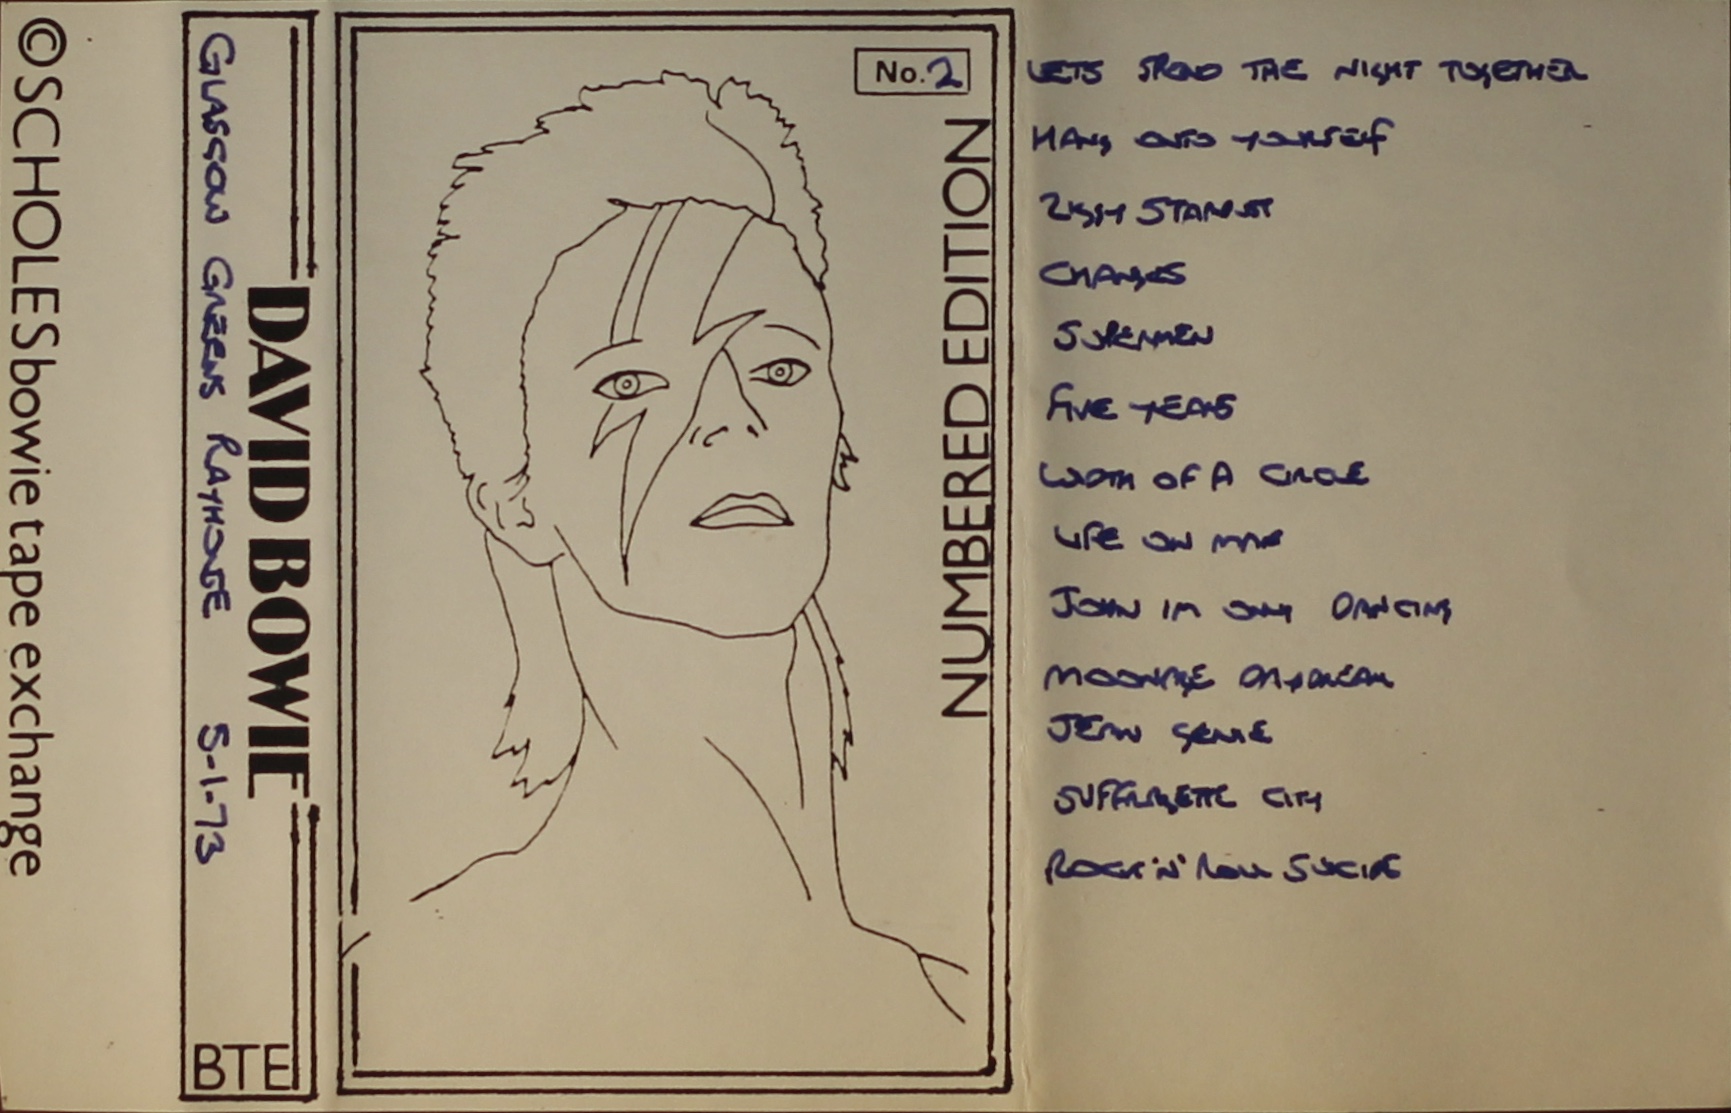 © SCHOLES bowie tape exchange
GLASGOW GREENS RAYHONSE 5-1-73
DAVID BOWIE
BTE
No. 2
NUMBERED EDITION
LETS SPEND THE NIGHT TOGETHER
HANG ONTO YOURSELF
ZIGGY STARDUST
CHANGES
SUPERMEN
FIVE YEARS
WIDTH OF A CIRCLE
LIFE ON MARS
JOHN IM ONLY DANCING
MOONAGE DAYDREAM
JEAN GENIE
SUFFRAGETTE CITY
ROCK 'N' ROLL SUICIDE